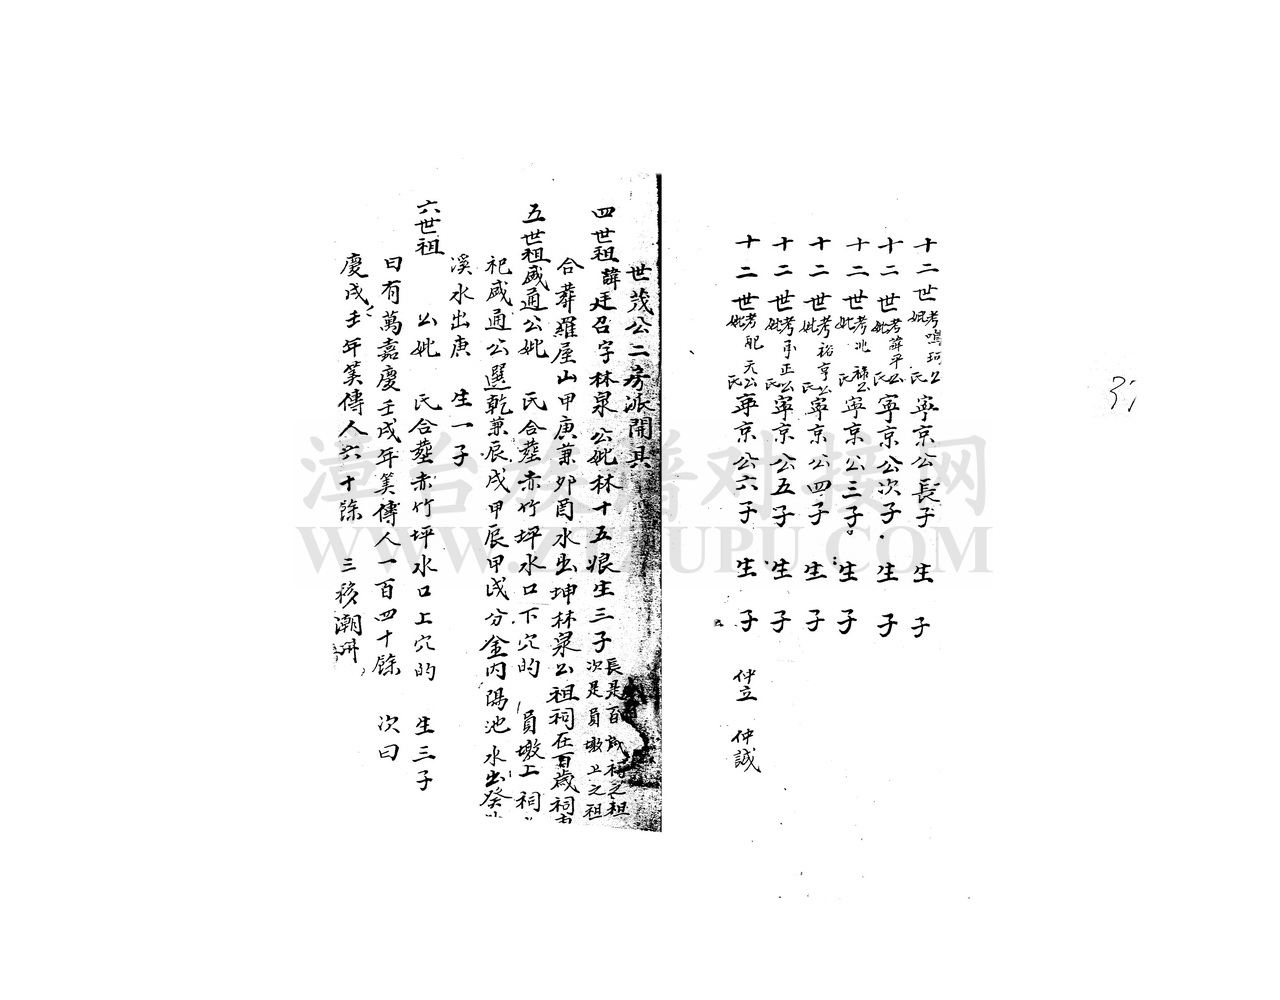 十二世考妣鳴珂公氏寧京公長子 生 子
十二世考妣薛平公氏寧京公次子 生 子
十二世考妣兆祿公氏寧京公三子 生 子
十二世考妣裕亨公氏寧京公四子 生 子
十二世考妣正公氏寧京公五子 生 子
十二世考妣配天公氏寧京公六子 生 子 仲立 仲誠
世茂公二房派開具
四世祖諱廷召字林泉公妣林十五娘生三子長是百歲祠之祖次是員墩上之祖
合葬羅屋山甲庚兼卯酉水出坤林泉公祖祠在百歲祠
五世祖盛通公妣 氏合葬赤竹坪水口下穴的 員墩上祠
祀盛通公選乾兼辰戌甲辰甲戌分金內隅池水出癸
溪水出庚 生一子
六世祖 公妣 氏合葬赤竹坪水口上穴的 生三子
曰有萬嘉慶壬戌年算傳人一百四十餘 次曰
慶戌壬年算傳人六十餘 三移潮
漳台族譜对接网
WWW.ZTZUPU.COM